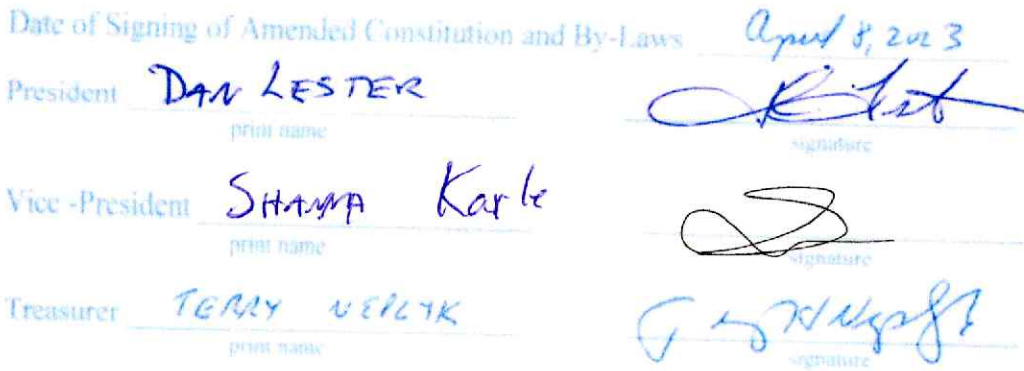 Date of Signing of Amended Constitution and By-Laws April 8, 2023
President DAN LESTER
print name signature
Vice -President SHANNA Karle
print name signature
Treasurer TERRY
print name signature